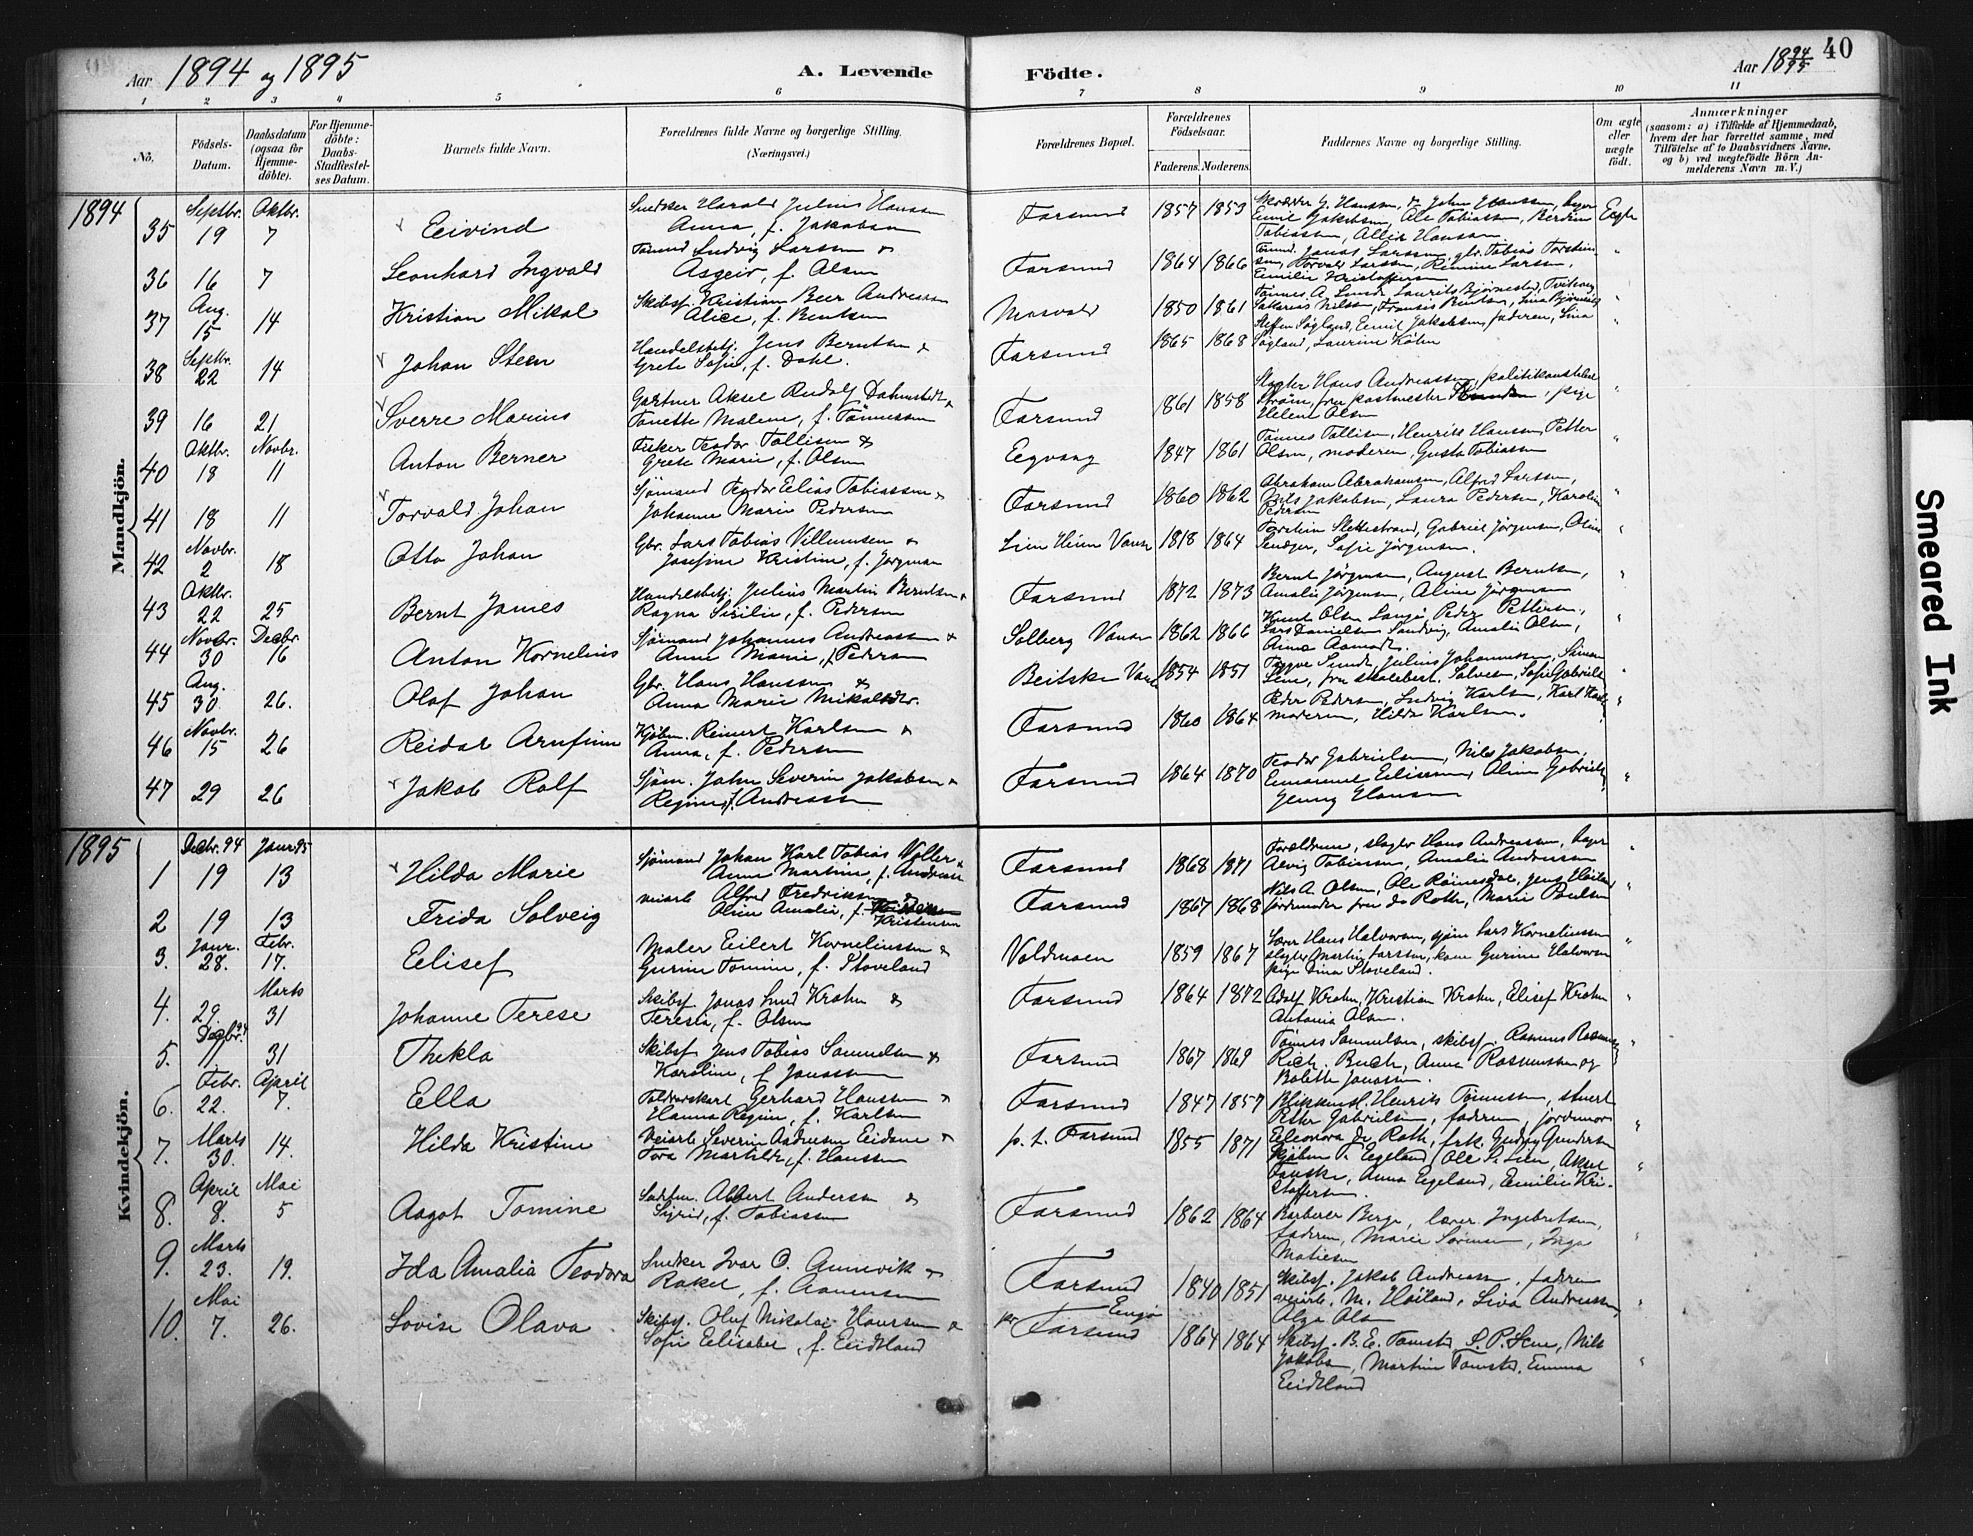 Aar 1894 og 1895
A. Levende Födte.
Aar 1894/95
40
1 2 3 4 5 6 7 8 9 10 11
No.
Födsels-Datum.
Daabsdatum (ogsaa for Hjemmedöbte).
For Hjemmedöbte: Daabs-Stadfæstelses Datum.
Barnets fulde Navn.
Forældrenes fulde Navne og borgerlige Stilling. (Næringsvei.)
Forældrenes Bopæl.
Forældrenes Födselsaar.
Faderens. Moderens.
Faddernes Navne og borgerlige Stilling.
Om ægte eller uægte födt.
Anmærkninger
(saasom: a) i Tilfælde af Hjemmedaab, hvem der har forrettet samme, med Tilföielse af to Daabsvidners Navne, og b) ved uægtefödte Börn Anmelderens Navn m. V.)
Mandkjön.
1894
35 Septbr. 19 Oktbr. 7 Eivind Snedker Harald Julius Hanssen Anna, f. Jakobsen Farsund 1857 1853 Emil Jakobsen, Ole Tobiassen, Tobiassen, Hansen Egte
36 16 7 Leonhard Ingvald Ludvig Larssen & Asgeir, f. Olsen Farsund 1864 1866 Jonas Larssen, Tobias Torvald Larssen, Larssen, Emilie Kristoffersen "
37 Aug. 15 14 Kristian Mikal Skibsf. Kristian Beer Andreassen Alice, f. Bentsen Mosvold 1850 1861 Tønnes A. Lunde, Laurits Bjørnestad, Nilsen, Bentsen "
38 Septbr. 22 14 Johan Steen Handelsbetj. Jens Berntsen & Grete Sofie, f. Dahl. Farsund 1865 1868 Steffen Søgland, Emil Jakobsen, faderen, Lina Søgland, Laurine "
39 16 21 Sverre Marius Gartner Aksel Rudolf Dahnstedt & Tonette Malene, f. Tønnessen Farsund 1861 1858 Slagter Hans Andreassen, Strøm, fru postmester pige Helene Olsen "
40 Oktbr. 18 Novbr. 11 Anton Berner Fisker Teodor Tollisen & Grete Marie, f. Olsen Eegvaag 1847 1861 Tønnes Tollisen, Henrik Hansen, Petter Olsen, moderen, Gusta Tobiassen "
41 18 11 Torvald Johan Sjømand Teodor Elias Tobiassen & Johanne Marie Pedersen Farsund 1860 1862 Abraham Abrahamsen, Alfred Larssen, Nils Jakobsen, Laura Pedersen, Karoline Pedersen "
42 Novbr. 2 18 Otto Johan Gbr. Lars Tobias Villumsen & Josefine Kristine, f. Jørgensen 1818 1864 Torstein Slettestrand, Gabriel Jørgensen, Sofie Jørgensen. "
43 Oktbr. 22 25 Bernt James Handelsbetj. Julius Martin Berntsen & Ragna Sirilie, f. Pedersen Farsund 1872 1873 Bernt Jørgensen, August Berntsen, Amalie Jørgensen, Aline Jørgensen "
44 Novbr. 30 Decbr. 16 Anton Kornelius Sjømand Johannes Andreassen & Anne Marie, f. Pedersen Solberg Vanse 1862 1866 Knut Olsen Peder Pettersen, Lars Danielsen Sandvig, Amalie Olsen, Anna Aamodt. "
45 Aug. 30. 26. Olaf Johan Gbr. Hans Hanssen & Anna Marie Mikalsdtr. Beitsken Vanse 1854 1851 Trygve Lunde, Julius Johannessen, Simon Lene, Sofie Gabrielsen "
46 Novbr. 15 26 Reidar Arnfinn Kjøbm. Reinert Karlsen & Anna, f. Pedersen Farsund 1860 1864 Peder Pedersen, Ludvig Karlsen, Karl moderen, Hilda Karlsen. "
47 29 26 Jakob Rolf Sjøm. John Severin Jakobsen & Regine, f. Andreassen Farsund 1864 1870 Teodor Gabrielsen, Nils Jakobsen, Emanuel Eilissen, Aline Gabrielsen, Jenny Hansen "
1895
Kvindekjön.
1 Decbr. 94 19 Janr. 95 13 Hilda Marie Sjømand Johan Karl Tobias Voller & Anne Martine, f. Andreassen Farsund 1868 1871 Forældrene, slagter Hans Andreassen, Tobiassen, Amalie Andreassen "
2 19 13 Frida Solveig Veiarb. Alfred Fredriksen & Oline Amalie, f. Kristensen Farsund 1867 1868 Nils A. Olsen, Ole Røinesdal, Jens Høiland, jordmoder fru de Roth, Marie Poulsen "
3. Janr. 28. Febr. 17. Eelisef Maler Eilert Kornelinssen & Gurine Tomine, f. Stoveland Voldmoen 1859 1867 Lærer Hans Halvorsen, sjøm. Lars Kornelinssen slagter Martin Larssen, kone Gurine Halvorsen pige Dina Stoveland. "
4. 29. Marts 31 Johanne Terese Skibsf. Jonas Lund Krohn & Teresia, f. Olsen Farsund 1864 1872 Adolf Krohn, Kristian Krohn, Elisef Krohn Antonia Olsen. "
5. Decbr. 94 11 31 Thekla Skibsf. Jens Tobias Samuelsen & Karoline, f. Jonassen Farsund 1867 1869 Tønnes Samuelsen, skibsf. Rasmus Rasmussen, Rich. Buch, Anna Rasmussen og Bolette Jonassen. "
6. Febr. 22. April 7. Ella Toldopskart Gerhard Hanssen & Hanna Regine, f. Karlsen Farsund 1847 1857 Blikkensl. Henrik Tønnessen, stuert Petter Gabrielsen, faderen, jordmor Eleonora de Roth, frk. Gundersen "
7. Marts 30. 14. Hilda Kristine Veiarb. Severin Andersen Eidane & Tora Martilde, f. Hanssen p. t. Farsund 1855 1871 Kjøbm. P. Eegeland, Ole P. Lien, Aksel Fauske, Anna Eegeland, Emilie Kristoffersen. "
8. April 8. Mai 5 Aagot Tomine Albert Andersen & Sigrid, f. Tobiassen Farsund 1862 1864 Barberer Berge, lærer Ingebretsen, faderen, Marie Sørensen, Inga Matiesen "
9. Marts 23. 19. Ida Amalia Teodora Snedker Ivar O. Annevik & Rakel, f. Aanensen Farsund 1840 1851 Skibsf. Jakob Andreassen, faderen veiarb. M. Høiland, Liva Andreassen, Olga Olsen "
10. Mai 7. 26. Lovise Olava Skibsf. Oluf Nikolai Hanssen & Sofie Eelisabet, f. Eeidsland pr Farsund 1864 1864 Skibsf. B. E. Tomstad, L. P. Lene, Nils Jakobsen, Martine Tomstad, Emma Eeidsland "
Smeared Ink